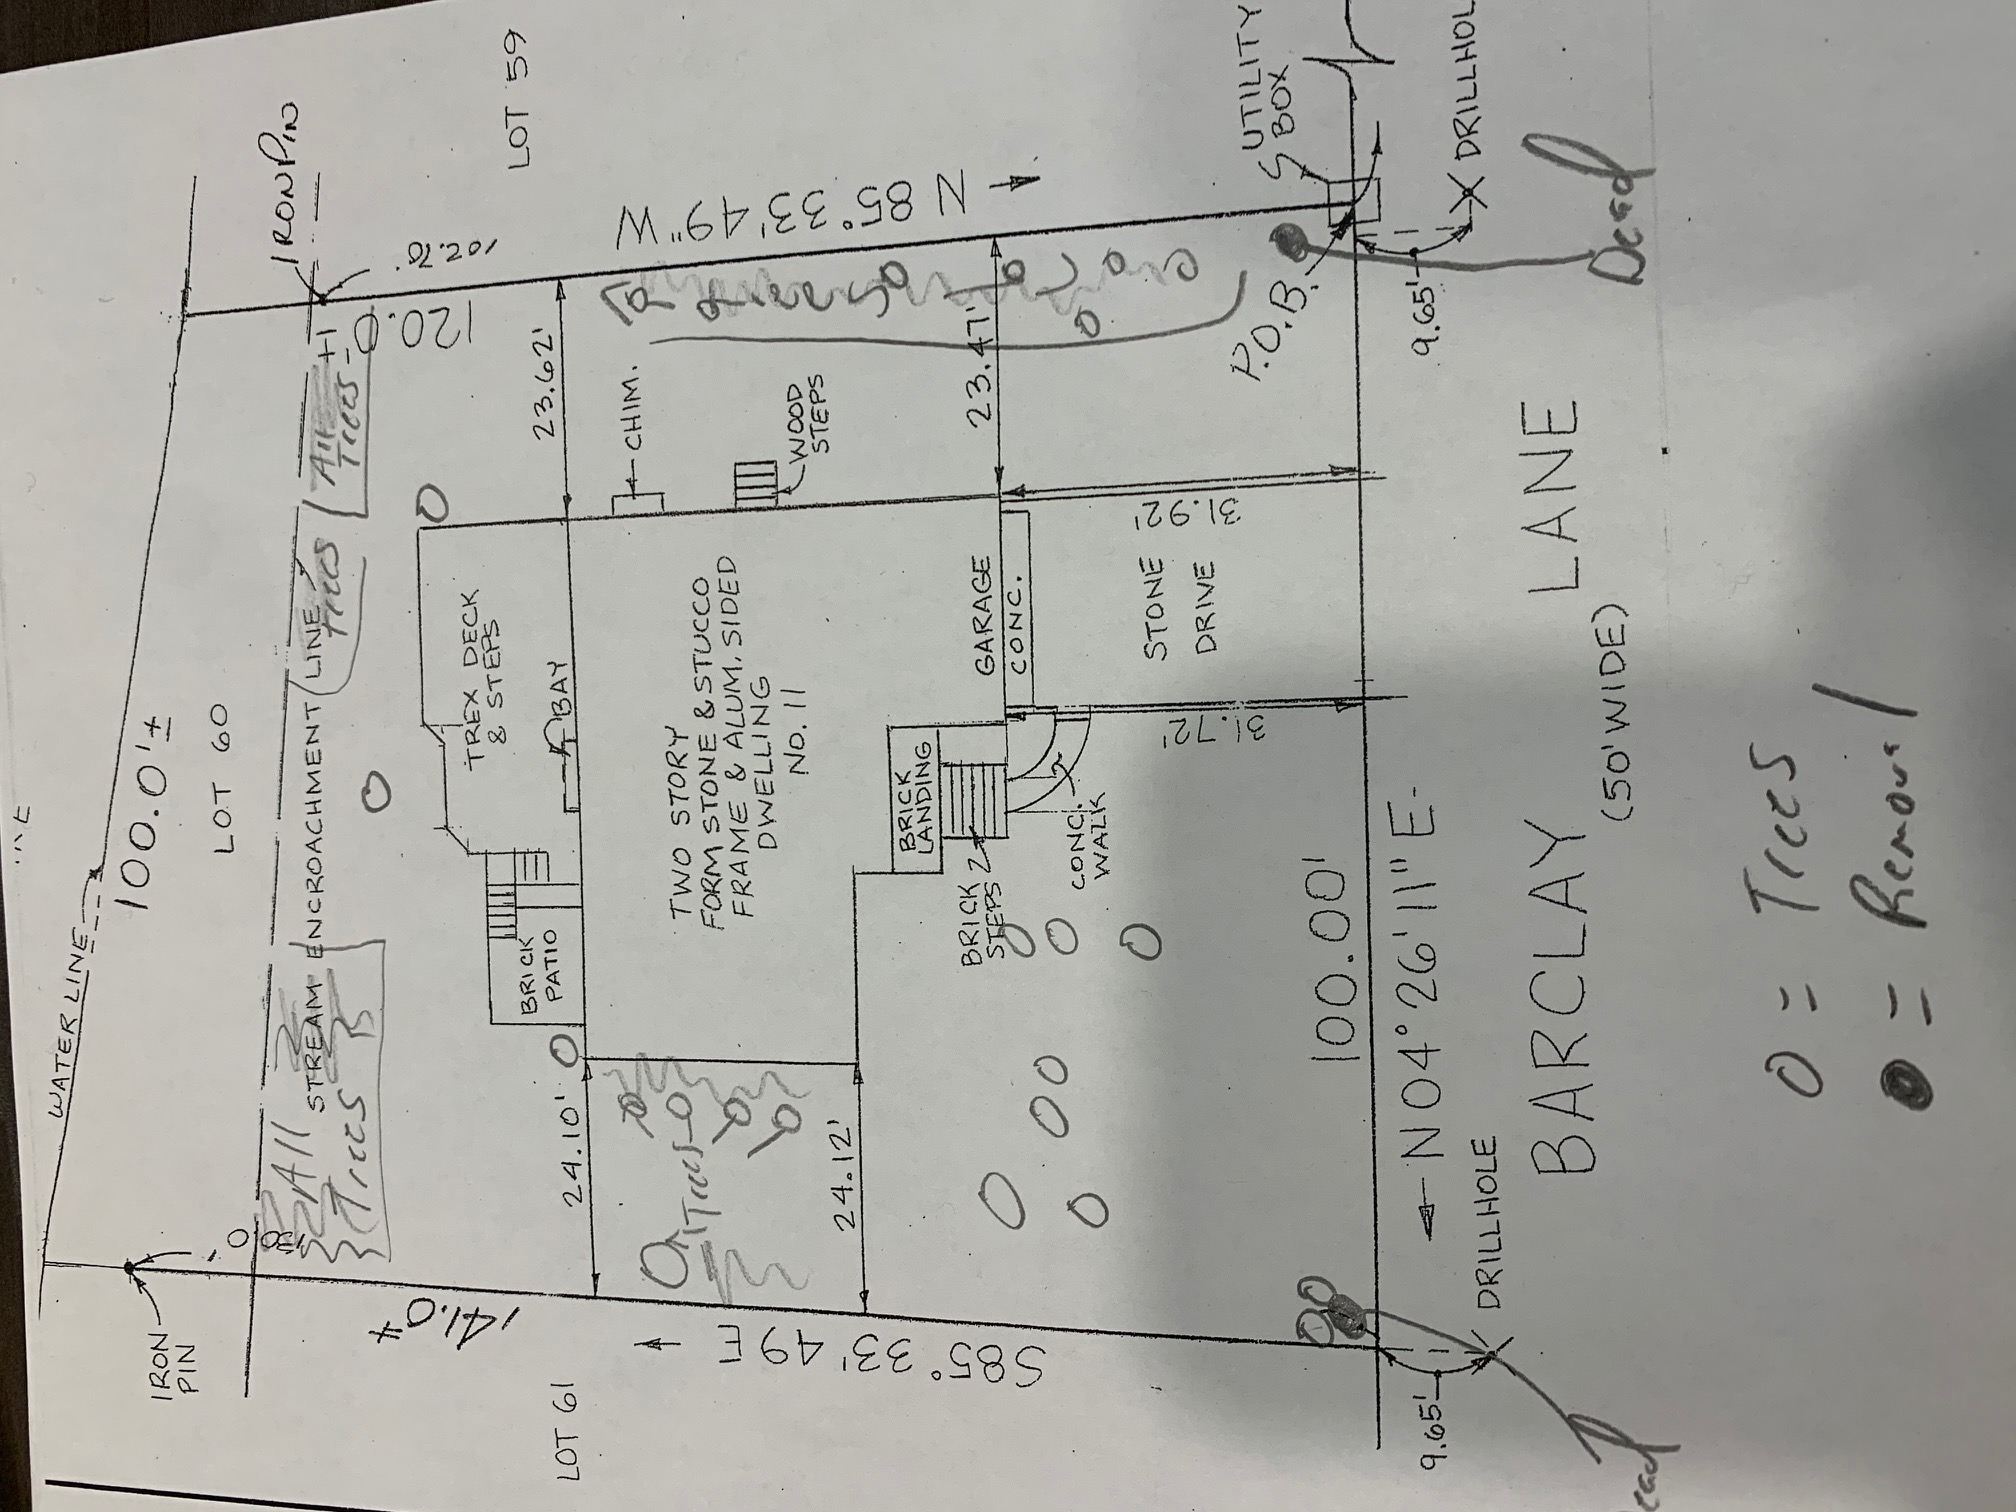 WATER LINE
100.0'±
LOT 60
IRON PIN
102.76'
LOT 59
IRON
PIN
141.0'±
120.0'±
STREAM ENCROACHMENT LINE
All
Trees
Trees
All
Trees
TREX DECK
& STEPS
BAY
BRICK
PATIO
23.62'
CHIM.
WOOD
STEPS
N 85° 33' 49" W
24.10'
TWO STORY
FORM STONE & STUCCO
FRAME & ALUM. SIDED
DWELLING
NO. 11
Trees
24.12'
LOT 61
S85° 33' 49 E
23.47'
GARAGE
CONC.
BRICK
LANDING
BRICK
STEPS
CONC.
WALK
31.92'
STONE
DRIVE
31.72'
P.O.B.
UTILITY
BOX
100.00'
N04° 26' 11" E
9.65'
DRILLHOL
Dead
9.65'
DRILLHOLE
ead
BARCLAY LANE
(50' WIDE)
O = Trees
= Removal